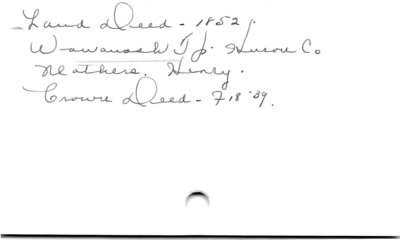 Land Deed - 1852.
Wawanosh Tp. Huron Co
Mathers, Henry.
Crown Deed - 718'39.